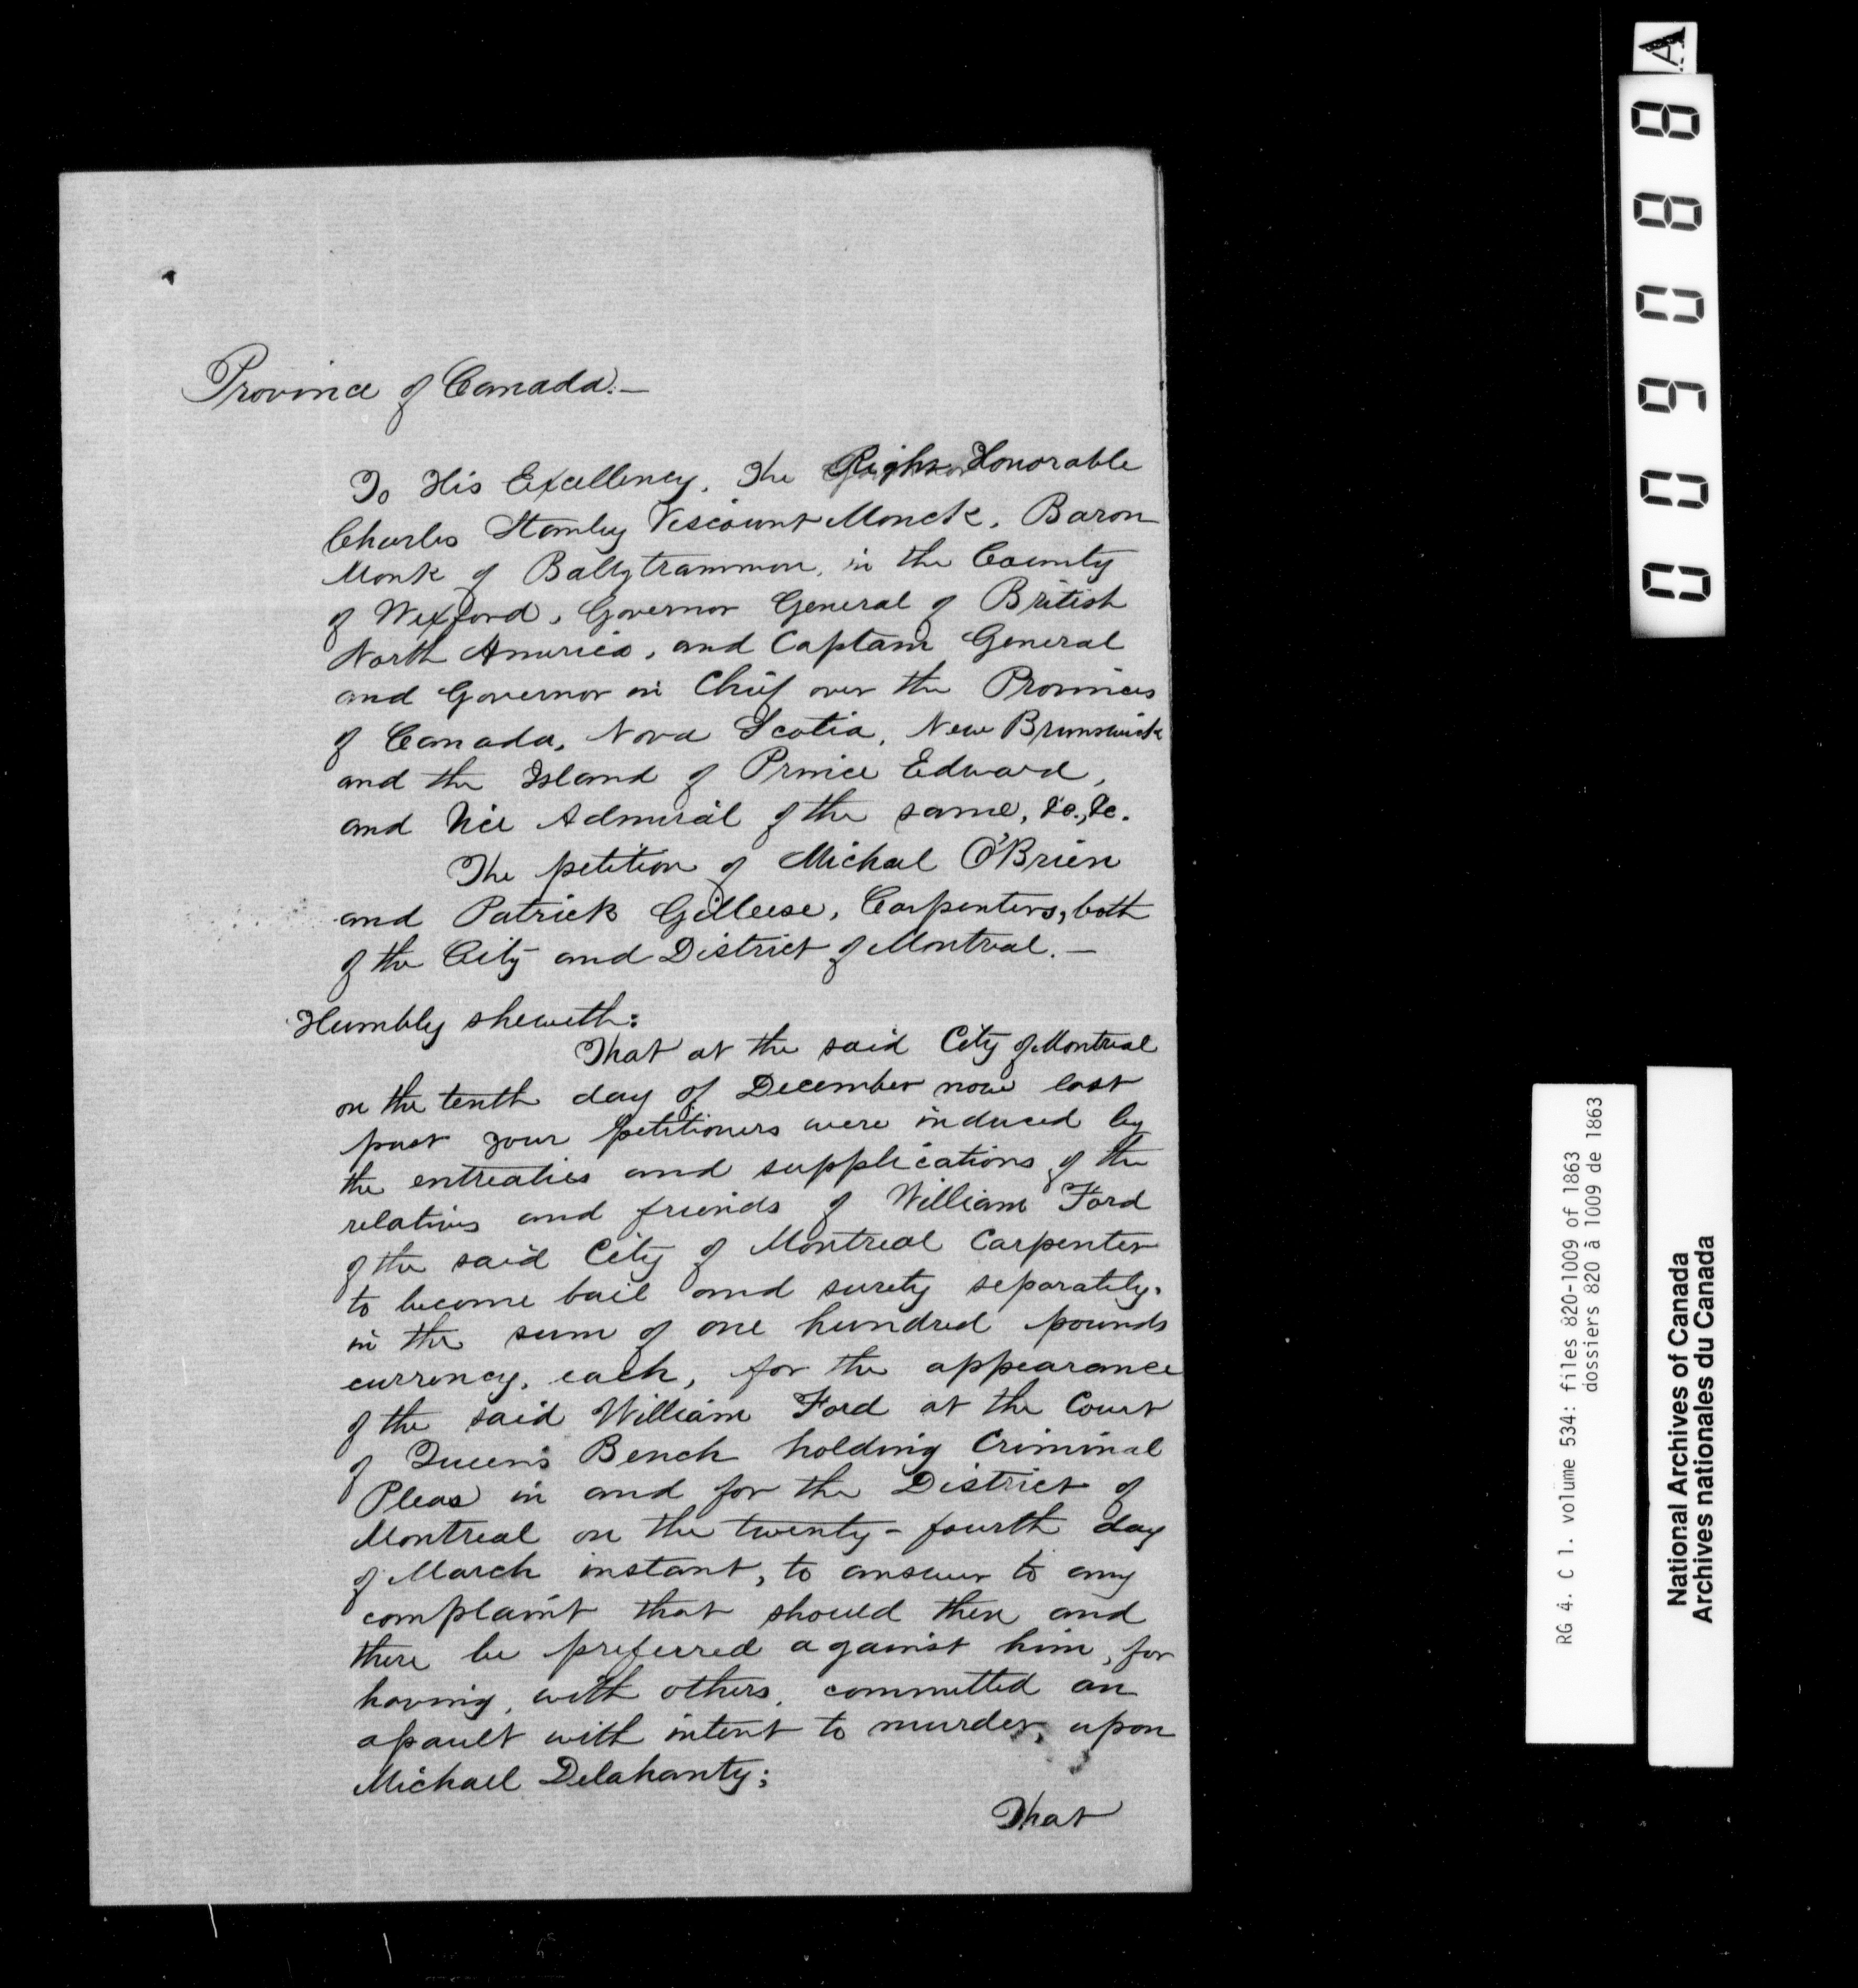 Province of Canada.—
To His Excellency, The Right Honorable
Charles Stanley Viscount Monck, Baron
Monk of Ballytrammon, in the County
of Wexford, Governor General of British
North America, and Captain General
and Governor in Chief over the Provinces
of Canada, Nova Scotia, New Brunswick
and the Island of Prince Edward,
and Vice Admiral of the same, &c., &c.
The petition of Michael O'Brien
and Patrick Gilleese, Carpenters, both
of the City and District of Montreal.—
Humbly sheweth:
That at the said City of Montreal
on the tenth day of December now last
past your petitioners were induced by
the entreaties and supplications of the
relatives and friends of William Ford
of the said City of Montreal Carpenter
to become bail and surety separately,
in the sum of one hundred pounds
currency, each, for the appearance
of the said William Ford at the Court
of Queen's Bench holding Criminal
Pleas in and for the District of
Montreal on the twenty-fourth day
of March instant, to answer to any
complaint that should then and
there be preferred against him, for
having, with others, committed an
assault with intent to murder, upon
Michael Delahanty;
That
009088
A
RG 4. C 1. volume 534: files 820-1009 of 1863
dossiers 820 à 1009 de 1863
National Archives of Canada
Archives nationales du Canada